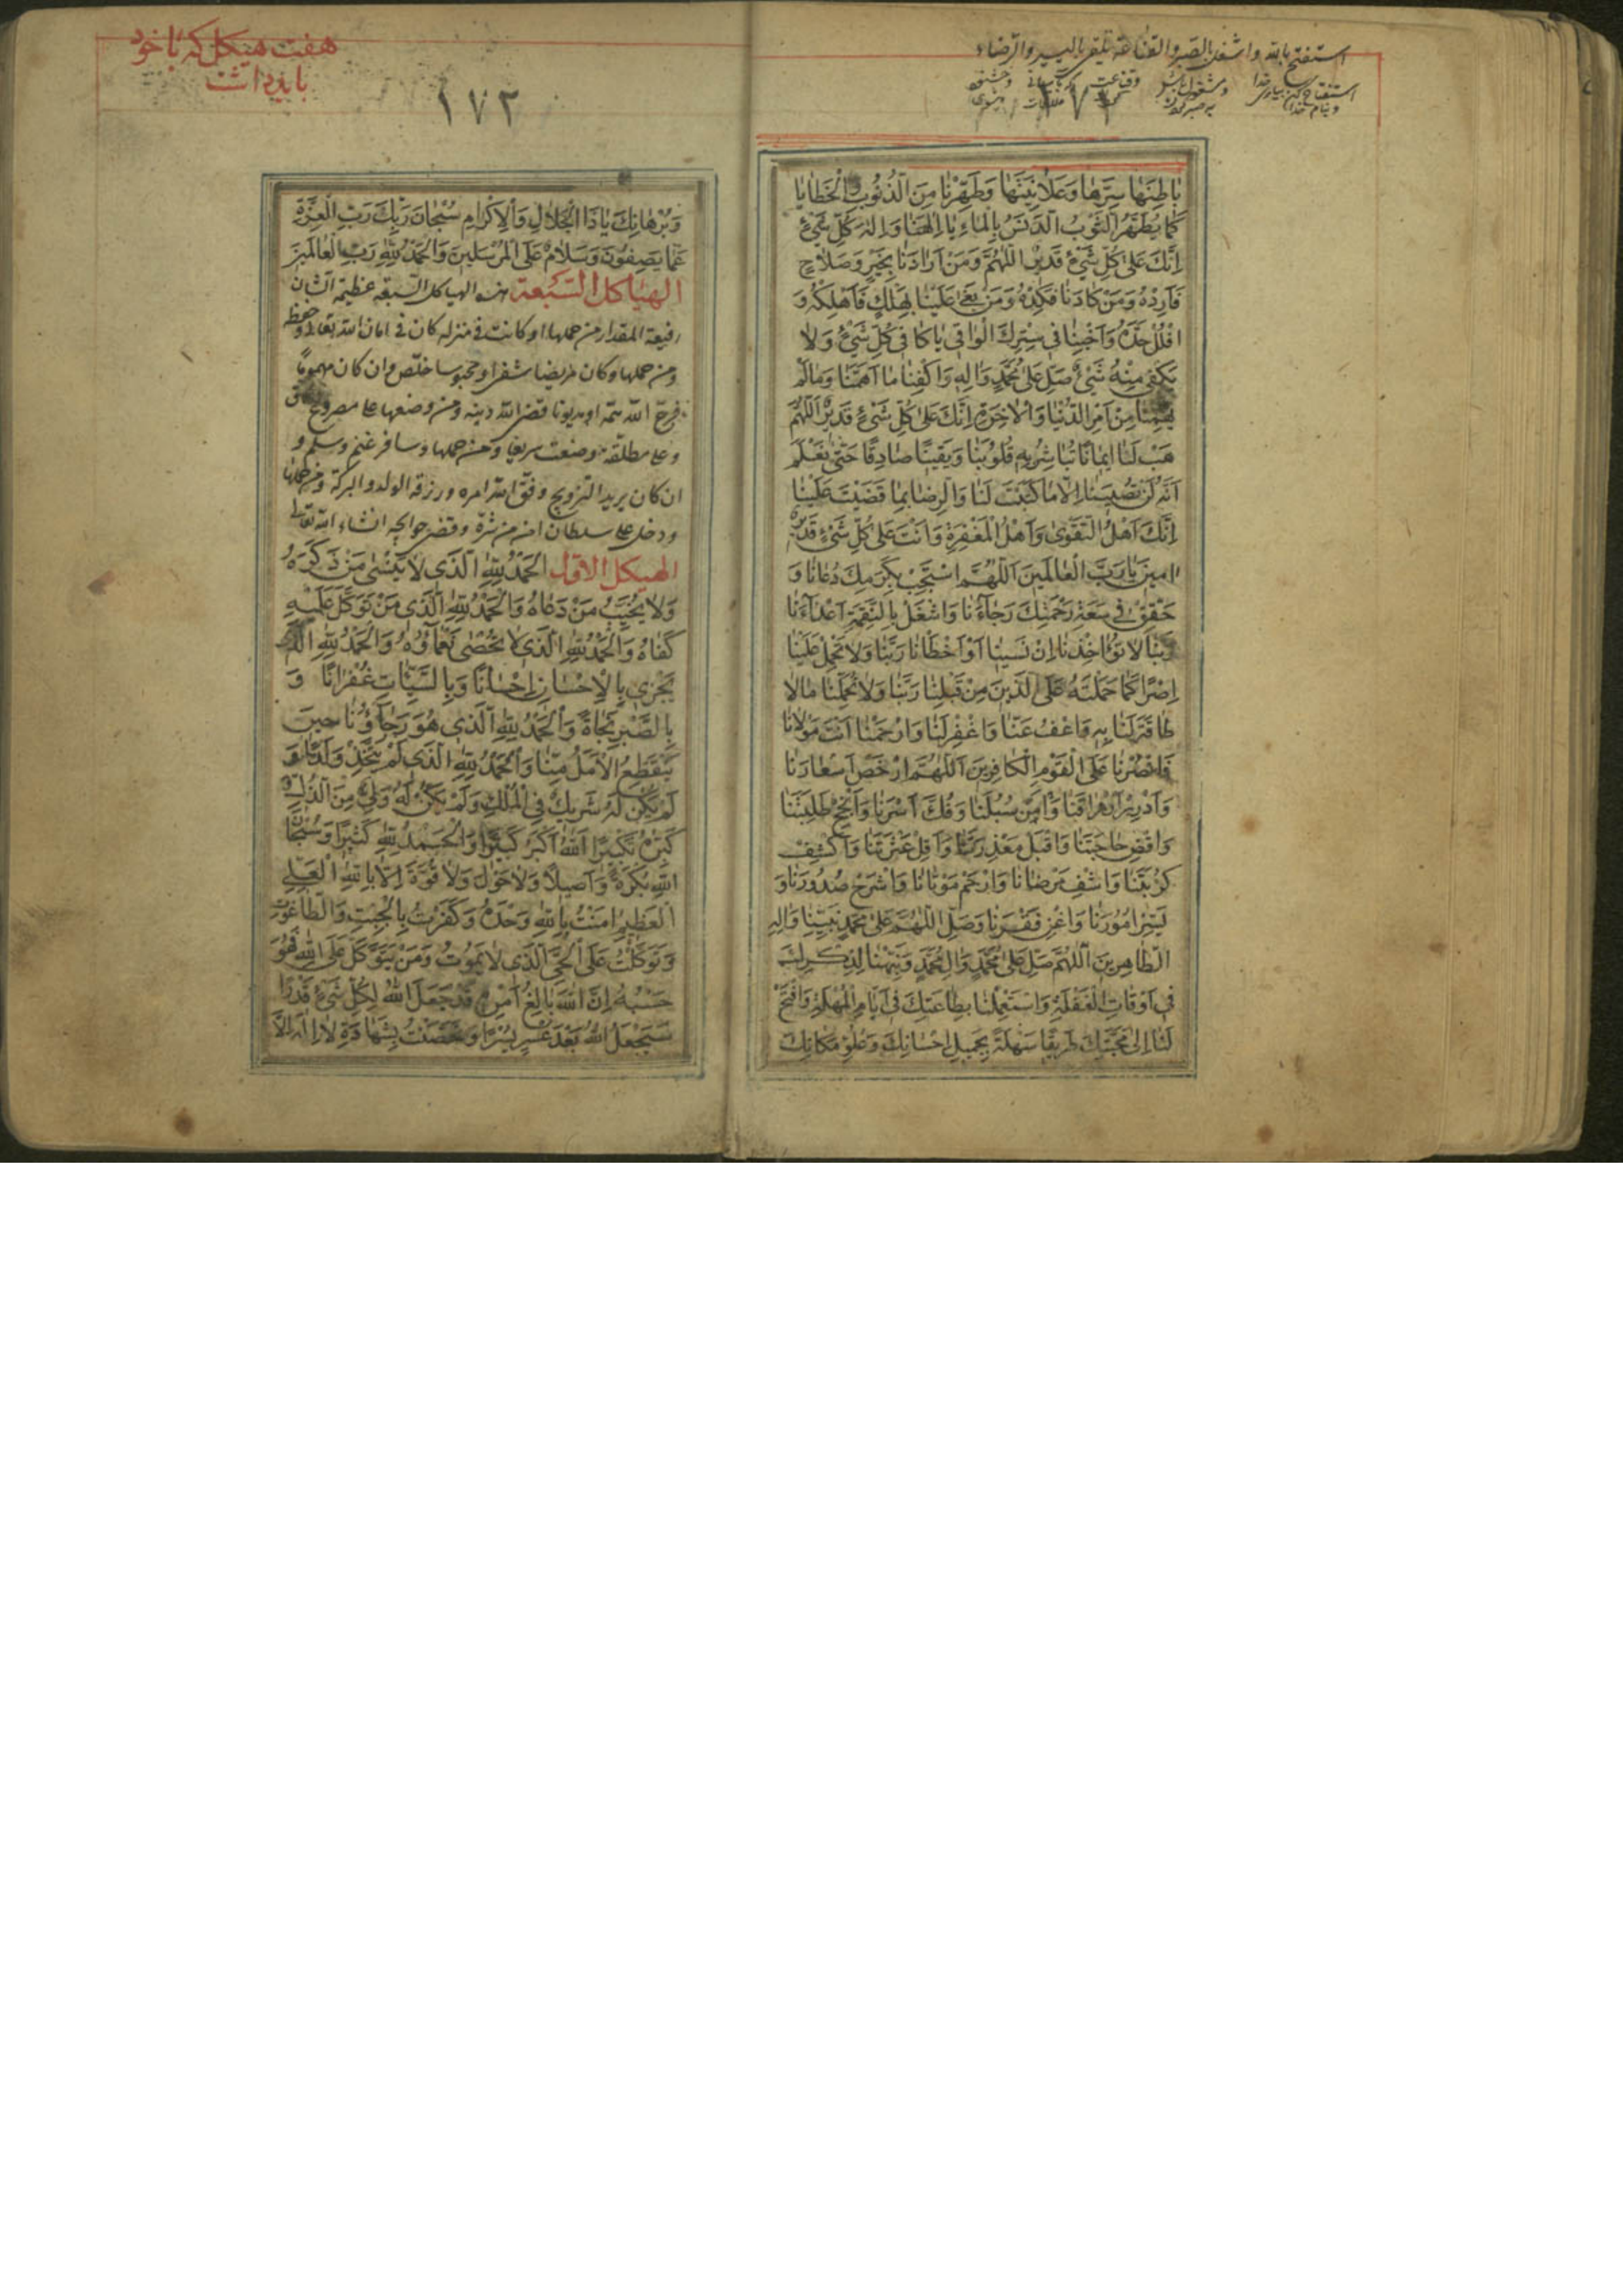 استفتح بالله واشغل بالصبر والقناعة باليسير والرضاء
١٧١
بٰاطِنَهٰا سِرَّهٰا وَعَلاٰنِيَتَهٰا وَطَهِّرْنٰا مِنَ الذُّنُوبِ وَالْخَطٰايٰا
كَمٰا يُطَهَّرُ الثَّوْبُ الدَّنَسُ بِالْمٰاءِ يٰا اِلٰهَنٰا وَاِلٰهَ كُلِّ شَيْءٍ
اِنَّكَ عَلىٰ كُلِّ شَيْءٍ قَدِيرٌ اَللّٰهُمَّ وَمَنْ اَرٰادَنٰا بِخَيْرٍ وَصَلاٰحٍ
فَاَرِدْهُ وَمَنْ كٰادَنٰا فَكِدْهُ وَمَنْ بَغىٰ عَلَيْنٰا فَاَهْلِكْهُ وَ
افْلُلْ حَدَّهُ وَ فِي سِتْرِكَ الْوٰاقِي يٰا كٰافِي كُلِّ شَيْءٍ وَلاٰ
يَكْفِي مِنْهُ شَيْءٌ صَلِّ عَلىٰ مُحَمَّدٍ وَاٰلِهِ وَاكْفِنٰا مٰا اَهَمَّنٰا وَمٰا لَمْ
يُهِمَّنٰا مِنْ اَمْرِ الدُّنْيٰا وَالْاٰخِرَةِ اِنَّكَ عَلىٰ كُلِّ شَيْءٍ قَدِيرٌ اَللّٰهُمَّ
هَبْ لَنٰا اِيمٰانًا تُبٰاشِرُ بِهِ قُلُوبَنٰا وَيَقِينًا صٰادِقًا حَتّىٰ نَعْلَمَ
اَنَّهُ لَنْ تُصِيبَنٰا اِلاّٰ مٰا كَتَبْتَ لَنٰا وَالرِّضٰا بِمٰا قَضَيْتَ عَلَيْنٰا
اِنَّكَ اَهْلُ التَّقْوىٰ وَاَهْلُ الْمَغْفِرَةِ وَاَنْتَ عَلىٰ كُلِّ شَيْءٍ قَدِيرٌ
اٰمِينَ يٰا رَبَّ الْعٰالَمِينَ اَللّٰهُمَّ اسْتَجِبْ بِكَرَمِكَ دُعٰانٰا وَ
حَقِّقْ فِي سَعَةِ رَحْمَتِكَ رَجٰاءَنٰا وَاشْغَلْ بِالنِّقِمَةِ اَعْدٰاءَنٰا
رَبَّنٰا لاٰ تُؤٰاخِذْنٰا اِنْ نَسِينٰا اَوْ اَخْطَأْنٰا رَبَّنٰا وَلاٰ تَحْمِلْ عَلَيْنٰا
اِصْرًا كَمٰا حَمَلْتَهُ عَلَى الَّذِينَ مِنْ قَبْلِنٰا رَبَّنٰا وَلاٰ تُحَمِّلْنٰا مٰا لاٰ
طٰاقَةَ لَنٰا بِهِ وَاعْفُ عَنّٰا وَاغْفِرْ لَنٰا وَارْحَمْنٰا اَنْتَ مَوْلاٰنٰا
فَانْصُرْنٰا عَلَى الْقَوْمِ الْكٰافِرِينَ اَللّٰهُمَّ ارْخَصْ اَسْعٰارَنٰا
وَاَدْرِرْ اَرْزٰاقَنٰا وَاٰمِنْ سُبُلَنٰا وَفُكَّ اَسْرَنٰا وَاَنْجِحْ طَلِبَتَنٰا
وَاقْضِ حٰاجَتَنٰا وَاقْبَلْ مَعْذِرَتَنٰا وَاَقِلْ عَثْرَتَنٰا وَاكْشِفْ
كُرْبَتَنٰا وَاشْفِ مَرْضٰانٰا وَارْحَمْ مَوْتٰانٰا وَاشْرَحْ صُدُورَنٰا وَ
يَسِّرْ اُمُورَنٰا وَاغْنِ فَقْرَنٰا وَصَلِّ اللّٰهُمَّ عَلىٰ مُحَمَّدٍ نَبِيِّنٰا وَاٰلِهِ
الطّٰاهِرِينَ اَللّٰهُمَّ صَلِّ عَلىٰ مُحَمَّدٍ وَاٰلِ مُحَمَّدٍ وَنَبِّهْنٰا لِذِكْرِكَ
فِي اَوْقٰاتِ الْغَفْلَةِ وَاسْتَعْمِلْنٰا بِطٰاعَتِكَ فِي اَيّٰامِ الْمُهْلَةِ وَافْتَحْ
لَنٰا اِلىٰ مَحَبَّتِكَ طَرِيقًا سَهْلَةً بِجَمِيلِ اِحْسٰانِكَ وَعُلُوِّ مَكٰانِكَ
هفت هيكل كه با خود
بايد داشت
١٧٢
وَبُرْهٰانِكَ يٰا ذَا الْجَلاٰلِ وَالْاِكْرٰامِ سُبْحٰانَ رَبِّكَ رَبِّ الْعِزَّةِ
عَمّٰا يَصِفُونَ وَسَلاٰمٌ عَلَى الْمُرْسَلِينَ وَالْحَمْدُ لِلّٰهِ رَبِّ الْعٰالَمِينَ
الهياكل السّبعة هذه الهياكل السّبعه عظيمة الشان
رفيعة المقدار من حملها او كانت فى منزله كان فى امان الله تعالى وحفظه
ومن حملها وكان مريضا شفى او محبوسا خلّص وان كان مهموما
فرّج الله همّه او مديونا قضى الله دينه ومن وضعها على مصروع
وعلى مطلّقة وضعت سريعا ومن حملها وسافر غنم وسلم و
ان كان يريد التزويج وفّق الله امره ورزقه الولد والبركة ومن حملها
ودخل على سلطان امن من شرّه وقضى حوايجه انشاء الله تعالى
الهيكل الاوّل اَلْحَمْدُ لِلّٰهِ الَّذِي لاٰ يَنْسىٰ مَنْ ذَكَرَهُ
وَلاٰ يُخَيِّبُ مَنْ دَعٰاهُ وَالْحَمْدُ لِلّٰهِ الَّذِي مَنْ تَوَكَّلَ عَلَيْهِ
كَفٰاهُ وَالْحَمْدُ لِلّٰهِ الَّذِي لاٰ تُحْصىٰ نَعْمٰاؤُهُ وَالْحَمْدُ لِلّٰهِ الَّذِي
يَجْزِي بِالْاِحْسٰانِ اِحْسٰانًا وَبِالسَّيِّئٰاتِ غُفْرٰانًا وَ
بِالصَّبْرِ نَجٰاةً وَالْحَمْدُ لِلّٰهِ الَّذِي هُوَ رَجٰاؤُنٰا حِينَ
يَنْقَطِعُ الْاَمَلُ مِنّٰا وَالْحَمْدُ لِلّٰهِ الَّذِي لَمْ يَتَّخِذْ وَلَدًا وَ
لَمْ يَكُنْ لَهُ شَرِيكٌ فِي الْمُلْكِ وَلَمْ يَكُنْ لَهُ وَلِيٌّ مِنَ الذُّلِّ وَ
كَبِّرْهُ تَكْبِيرًا اَللّٰهُ اَكْبَرُ كَبِيرًا وَالْحَمْدُ لِلّٰهِ كَثِيرًا وَسُبْحٰانَ
اللّٰهِ بُكْرَةً وَاَصِيلاً وَلاٰ حَوْلَ وَلاٰ قُوَّةَ اِلاّٰ بِاللّٰهِ الْعَلِيِّ
الْعَظِيمِ اٰمَنْتُ بِاللّٰهِ وَحْدَهُ وَكَفَرْتُ بِالْجِبْتِ وَالطّٰاغُوتِ
وَتَوَكَّلْتُ عَلَى الْحَيِّ الَّذِي لاٰ يَمُوتُ وَمَنْ يَتَوَكَّلْ عَلَى اللّٰهِ فَهُوَ
حَسْبُهُ اِنَّ اللّٰهَ بٰالِغُ اَمْرِهِ قَدْ جَعَلَ اللّٰهُ لِكُلِّ شَيْءٍ قَدْرًا
سَيَجْعَلُ اللّٰهُ بَعْدَ عُسْرٍ يُسْرًا وَتَحَصَّنْتُ بِشَهٰادَةِ لاٰ اِلٰهَ اِلاَّ